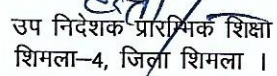 उप निदेशक प्रारम्भिक शिक्षा
शिमला-4, जिला शिमला ।